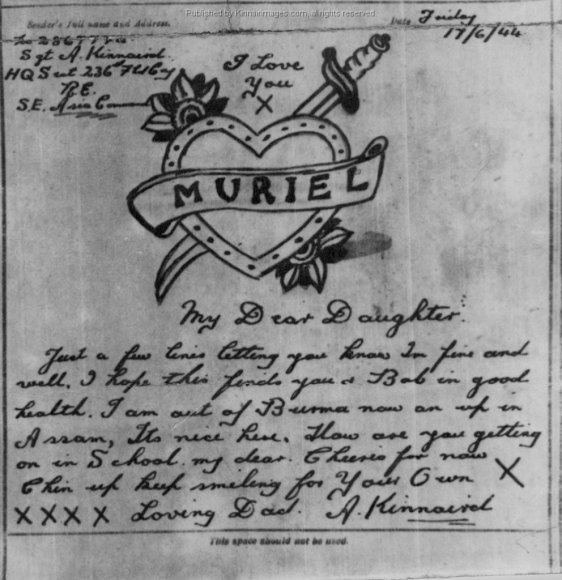 Published by Kinnairimages.com, all rights reserved
Sender's full name and Address.
Date Friday
17/6/44
Sgt A. Kinnaird.
HQ Sect 236
R.E.
S.E. Asia Command
I Love
You
X
MURIEL
My Dear Daughter.
Just a few lines letting you know Im fine and
well. I hope this finds you & Bob in good
health. I am out of Burma now an up in
Assam, Its nice here. How are you getting
on in School my dear. Cheerio for now
Chin up keep smiling for Your Own X
XXXX Loving Dad. A. Kinnaird
This space should not be used.